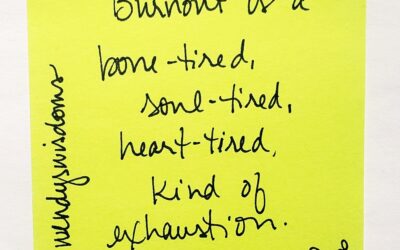 Burnout is a
bone-tired,
soul-tired,
heart-tired,
kind of
exhaustion.
wendyswisdoms